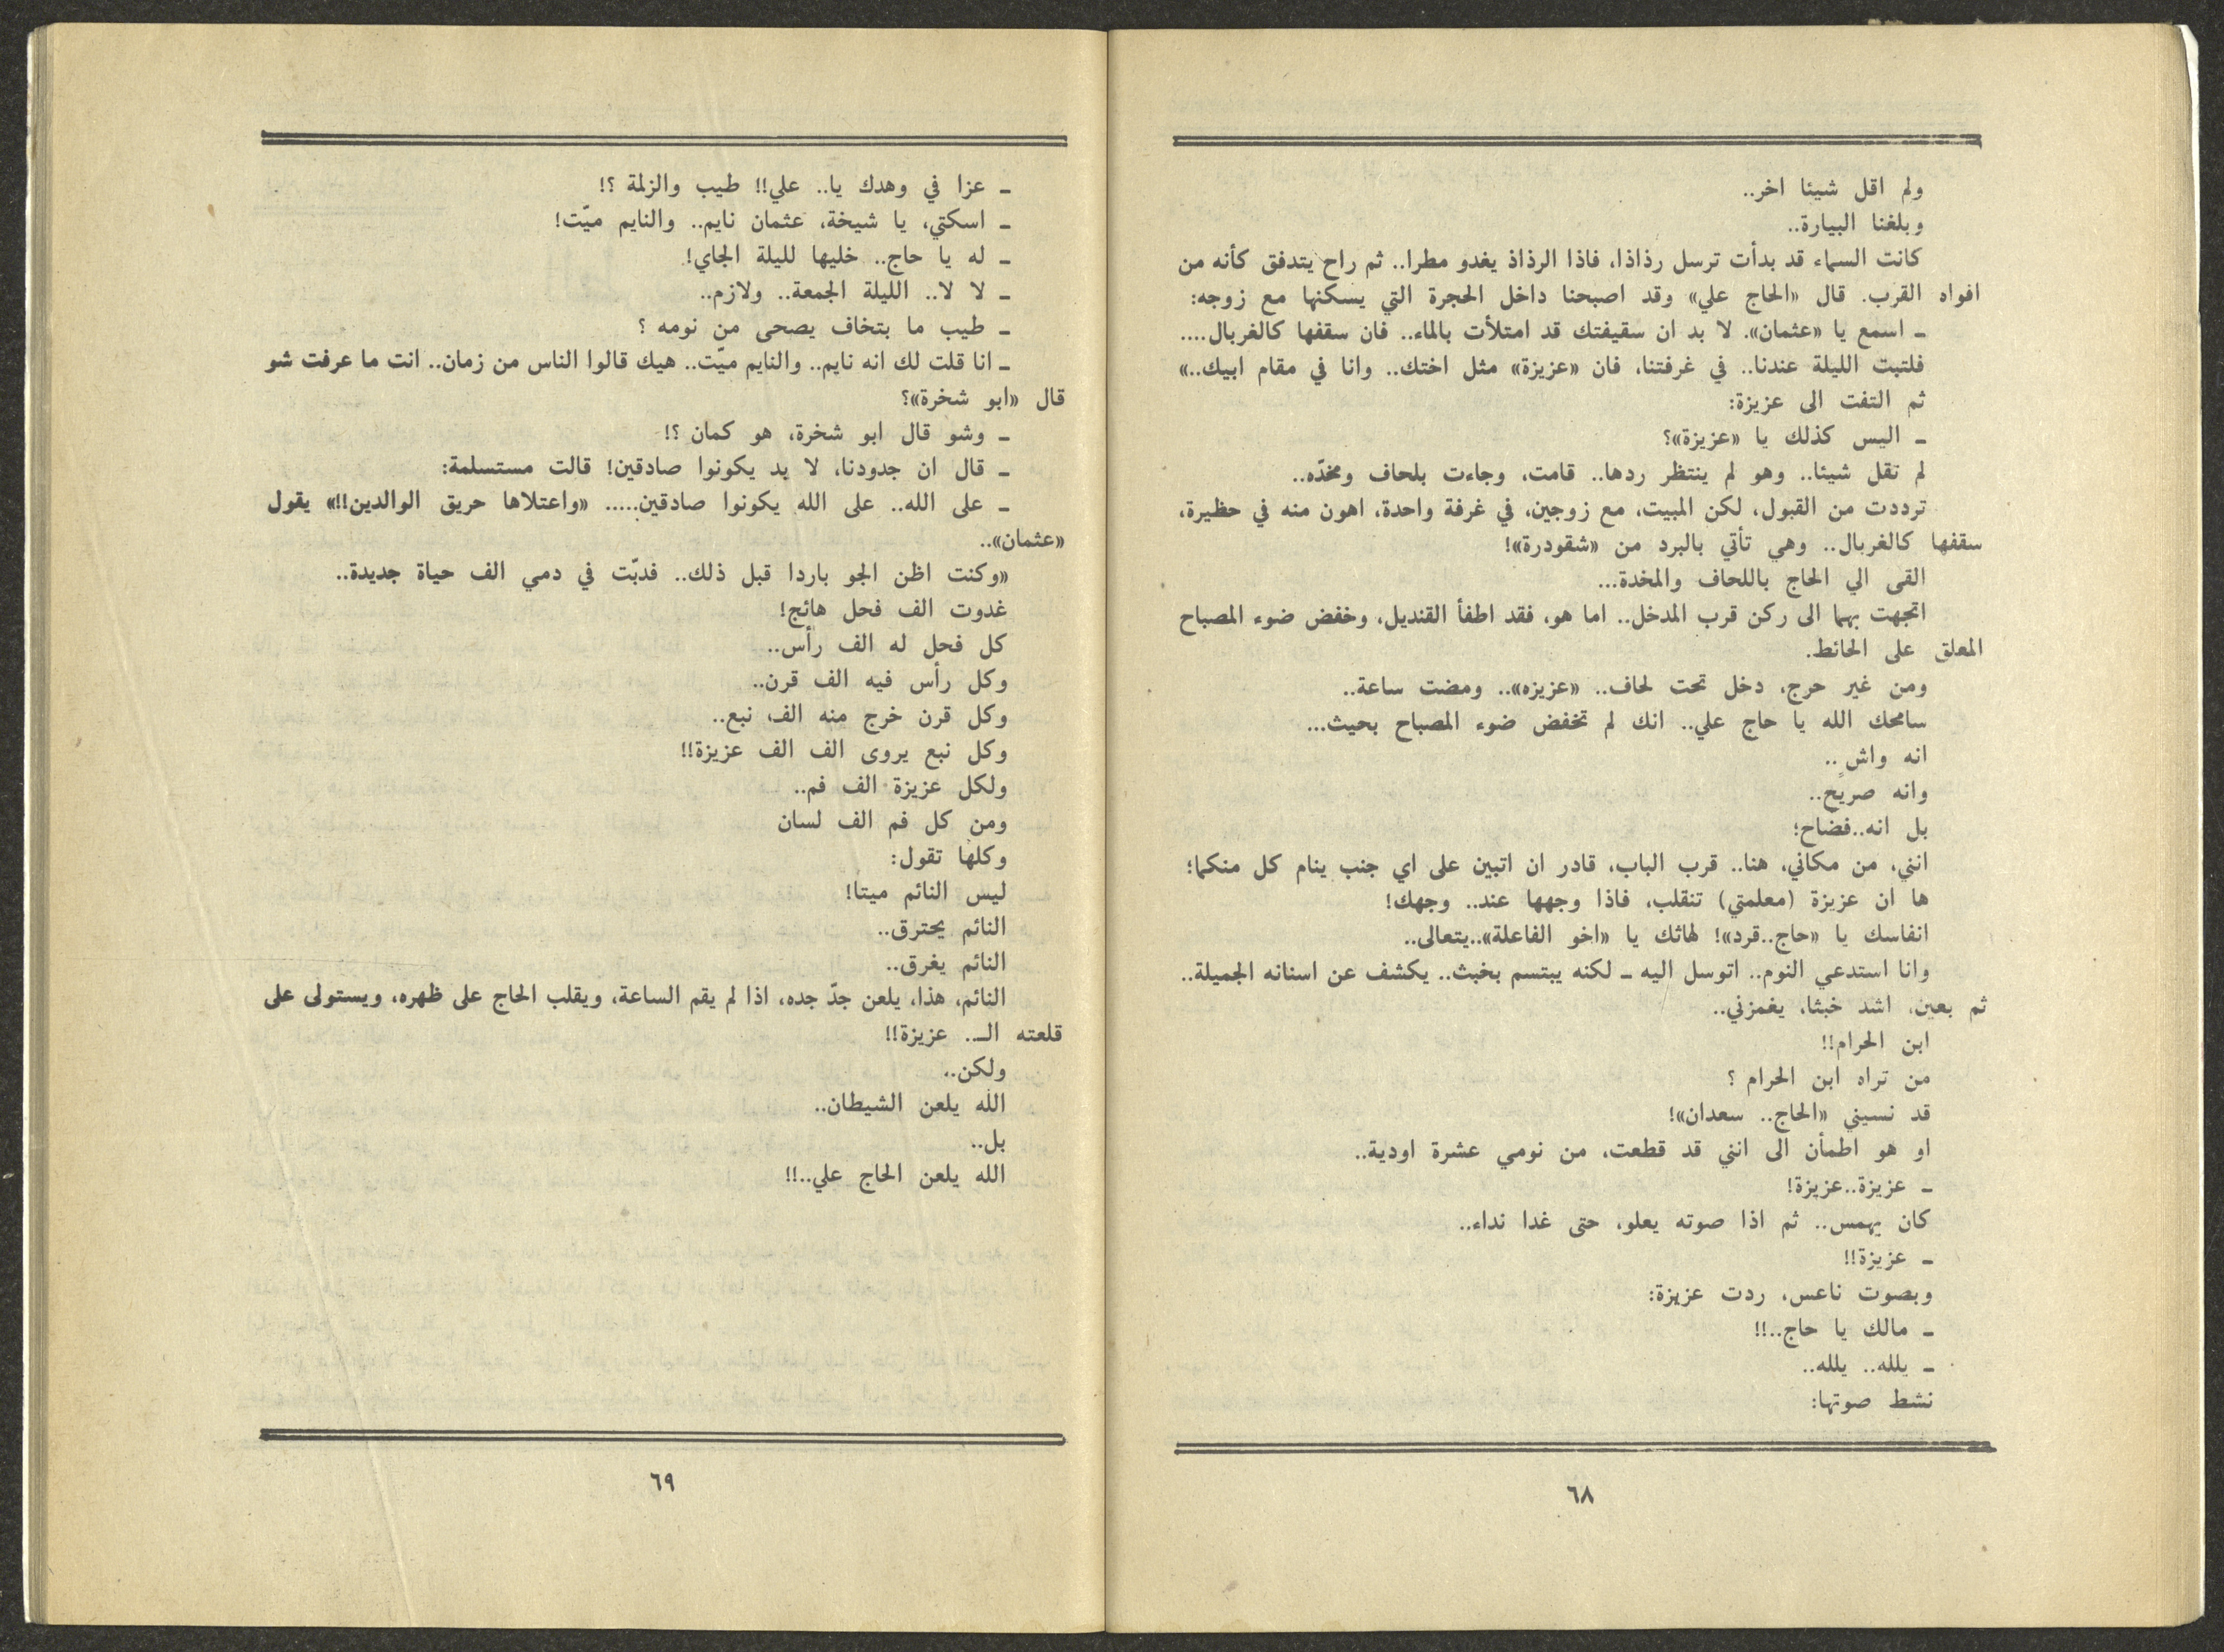 ولم اقل شيئا اخر..
وبلغنا البيارة..
كانت السماء قد بدأت ترسل رذاذا، فاذا الرذاذ يغدو مطرا.. ثم راح يتدفق كأنه من
افواه القرب. قال «الحاج علي» وقد اصبحنا داخل الحجرة التي يسكنها مع زوجه:
ـ اسمع يا «عثمان». لا بد ان سقيفتك قد امتلأت بالماء.. فان سقفها كالغربال....
فلتبت الليلة عندنا.. في غرفتنا، فان «عزيزة» مثل اختك.. وانا في مقام ابيك..»
ثم التفت الى عزيزة:
ـ اليس كذلك يا «عزيزة»؟
لم تقل شيئا.. وهو لم ينتظر ردها.. قامت، وجاءت بلحاف ومخدّه..
ترددت من القبول، لكن المبيت، مع زوجين، في غرفة واحدة، اهون منه في حظيرة،
سقفها كالغربال.. وهي تأتي بالبرد من «شقودرة»!
القى الي الحاج باللحاف والمخدة...
اتجهت بهما الى ركن قرب المدخل.. اما هو، فقد اطفأ القنديل، وخفض ضوء المصباح
المعلق على الحائط.
ومن غير حرج، دخل تحت لحاف.. «عزيزه».. ومضت ساعة..
سامحك الله يا حاج علي.. انك لم تخفض ضوء المصباح بحيث...
انه واشٍ..
وانه صريح..
بل انه..فضاح؛
انني، من مكاني، هنا.. قرب الباب، قادر ان اتبين على اي جنب ينام كل منكما؛
ها ان عزيزة (معلمتي) تنقلب، فاذا وجهها عند.. وجهك!
انفاسك يا «حاج..قرد»! لهاثك يا «اخو الفاعلة»..يتعالى..
وانا استدعي النوم.. اتوسل اليه ـ لكنه يبتسم بخبث.. يكشف عن اسنانه الجميلة..
ثم بعين، اشد خبثا، يغمزني..
ابن الحرام!!
من تراه ابن الحرام ؟
قد نسيني «الحاج.. سعدان»!
او هو اطمأن الى انني قد قطعت، من نومي عشرة اودية..
ـ عزيزة..عزيزة!
كان يهمس.. ثم اذا صوته يعلو، حتى غدا نداء..
ـ عزيزة!!
وبصوت ناعس، ردت عزيزة:
ـ مالك يا حاج..!!
ـ يلله.. يلله..
نشط صوتها:
٦٨
ـ عزا في وهدك يا.. علي!! طيب والزلمة ؟!
ـ اسكتي، يا شيخة، عثمان نايم.. والنايم ميّت!
ـ له يا حاج.. خليها لليلة الجاي!
ـ لا لا.. الليلة الجمعة.. ولازم..
ـ طيب ما بتخاف يصحى من نومه ؟
ـ انا قلت لك انه نايم.. والنايم ميّت.. هيك قالوا الناس من زمان.. انت ما عرفت شو
قال «ابو شخرة»؟
ـ وشو قال ابو شخرة، هو كمان ؟!
ـ قال ان جدودنا، لا بد يكونوا صادقين! قالت مستسلمة:
ـ على الله.. على الله يكونوا صادقين..... «واعتلاها حريق الوالدين!!» يقول
«عثمان»..
«وكنت اظن الجو باردا قبل ذلك.. فدبّت في دمي الف حياة جديدة..
غدوت الف فحل هائج!
كل فحل له الف رأس..
وكل رأس فيه الف قرن..
وكل قرن خرج منه الف نبع..
وكل نبع يروى الف الف عزيزة!!
ولكل عزيزة الف فم..
ومن كل فم الف لسان
وكلها تقول:
ليس النائم ميتا!
النائم يحترق..
النائم يغرق..
النائم، هذا، يلعن جدّ جده، اذا لم يقم الساعة، ويقلب الحاج على ظهره، ويستولى على
قلعته الـ.. عزيزة!!
ولكن..
الله يلعن الشيطان..
بل..
الله يلعن الحاج علي..!!
٦٩